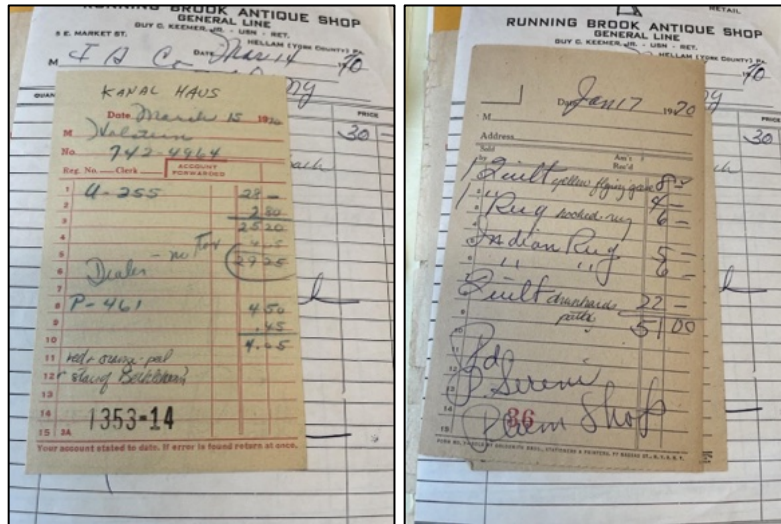 RUNNING BROOK ANTIQUE SHOP
GENERAL LINE
GUY C. KEEMER, JR. - USN - RET.
E. MARKET ST.
HELLAM (YORK COUNTY) PA.
Date Mar 14 1970
M
QUAN
PRICE
30 -
KANAL HAUS
Date March 15 19
M Holstein
No. 742-4964
Reg. No. Clerk
ACCOUNT FORWARDED
1 U-255 28 -
2 2 80
3 25 20
4 4 05
5 - no Tax 29 25
6 Dealer
7
8 P-461 4 50
9 .45
10 4.05
11
12
13
14 1353-14
15 3A
Your account stated to date. If error is found return at once.
RETAIL
RUNNING BROOK ANTIQUE SHOP
GENERAL LINE
GUY C. KEEMER, JR. - USN - RET.
HELLAM (YORK COUNTY) PA.
PRICE
30 -
Date Jan 17 1970
M
Address
Sold by
Am't Rec'd
1 Quilt yellow flying geese 8 -
4 -
1 Rug hooked rug 6 -
Indian Rug 5 -
" " 6 -
Quilt drunkard path 22 -
51 00
Pd
Shop
36
14
15